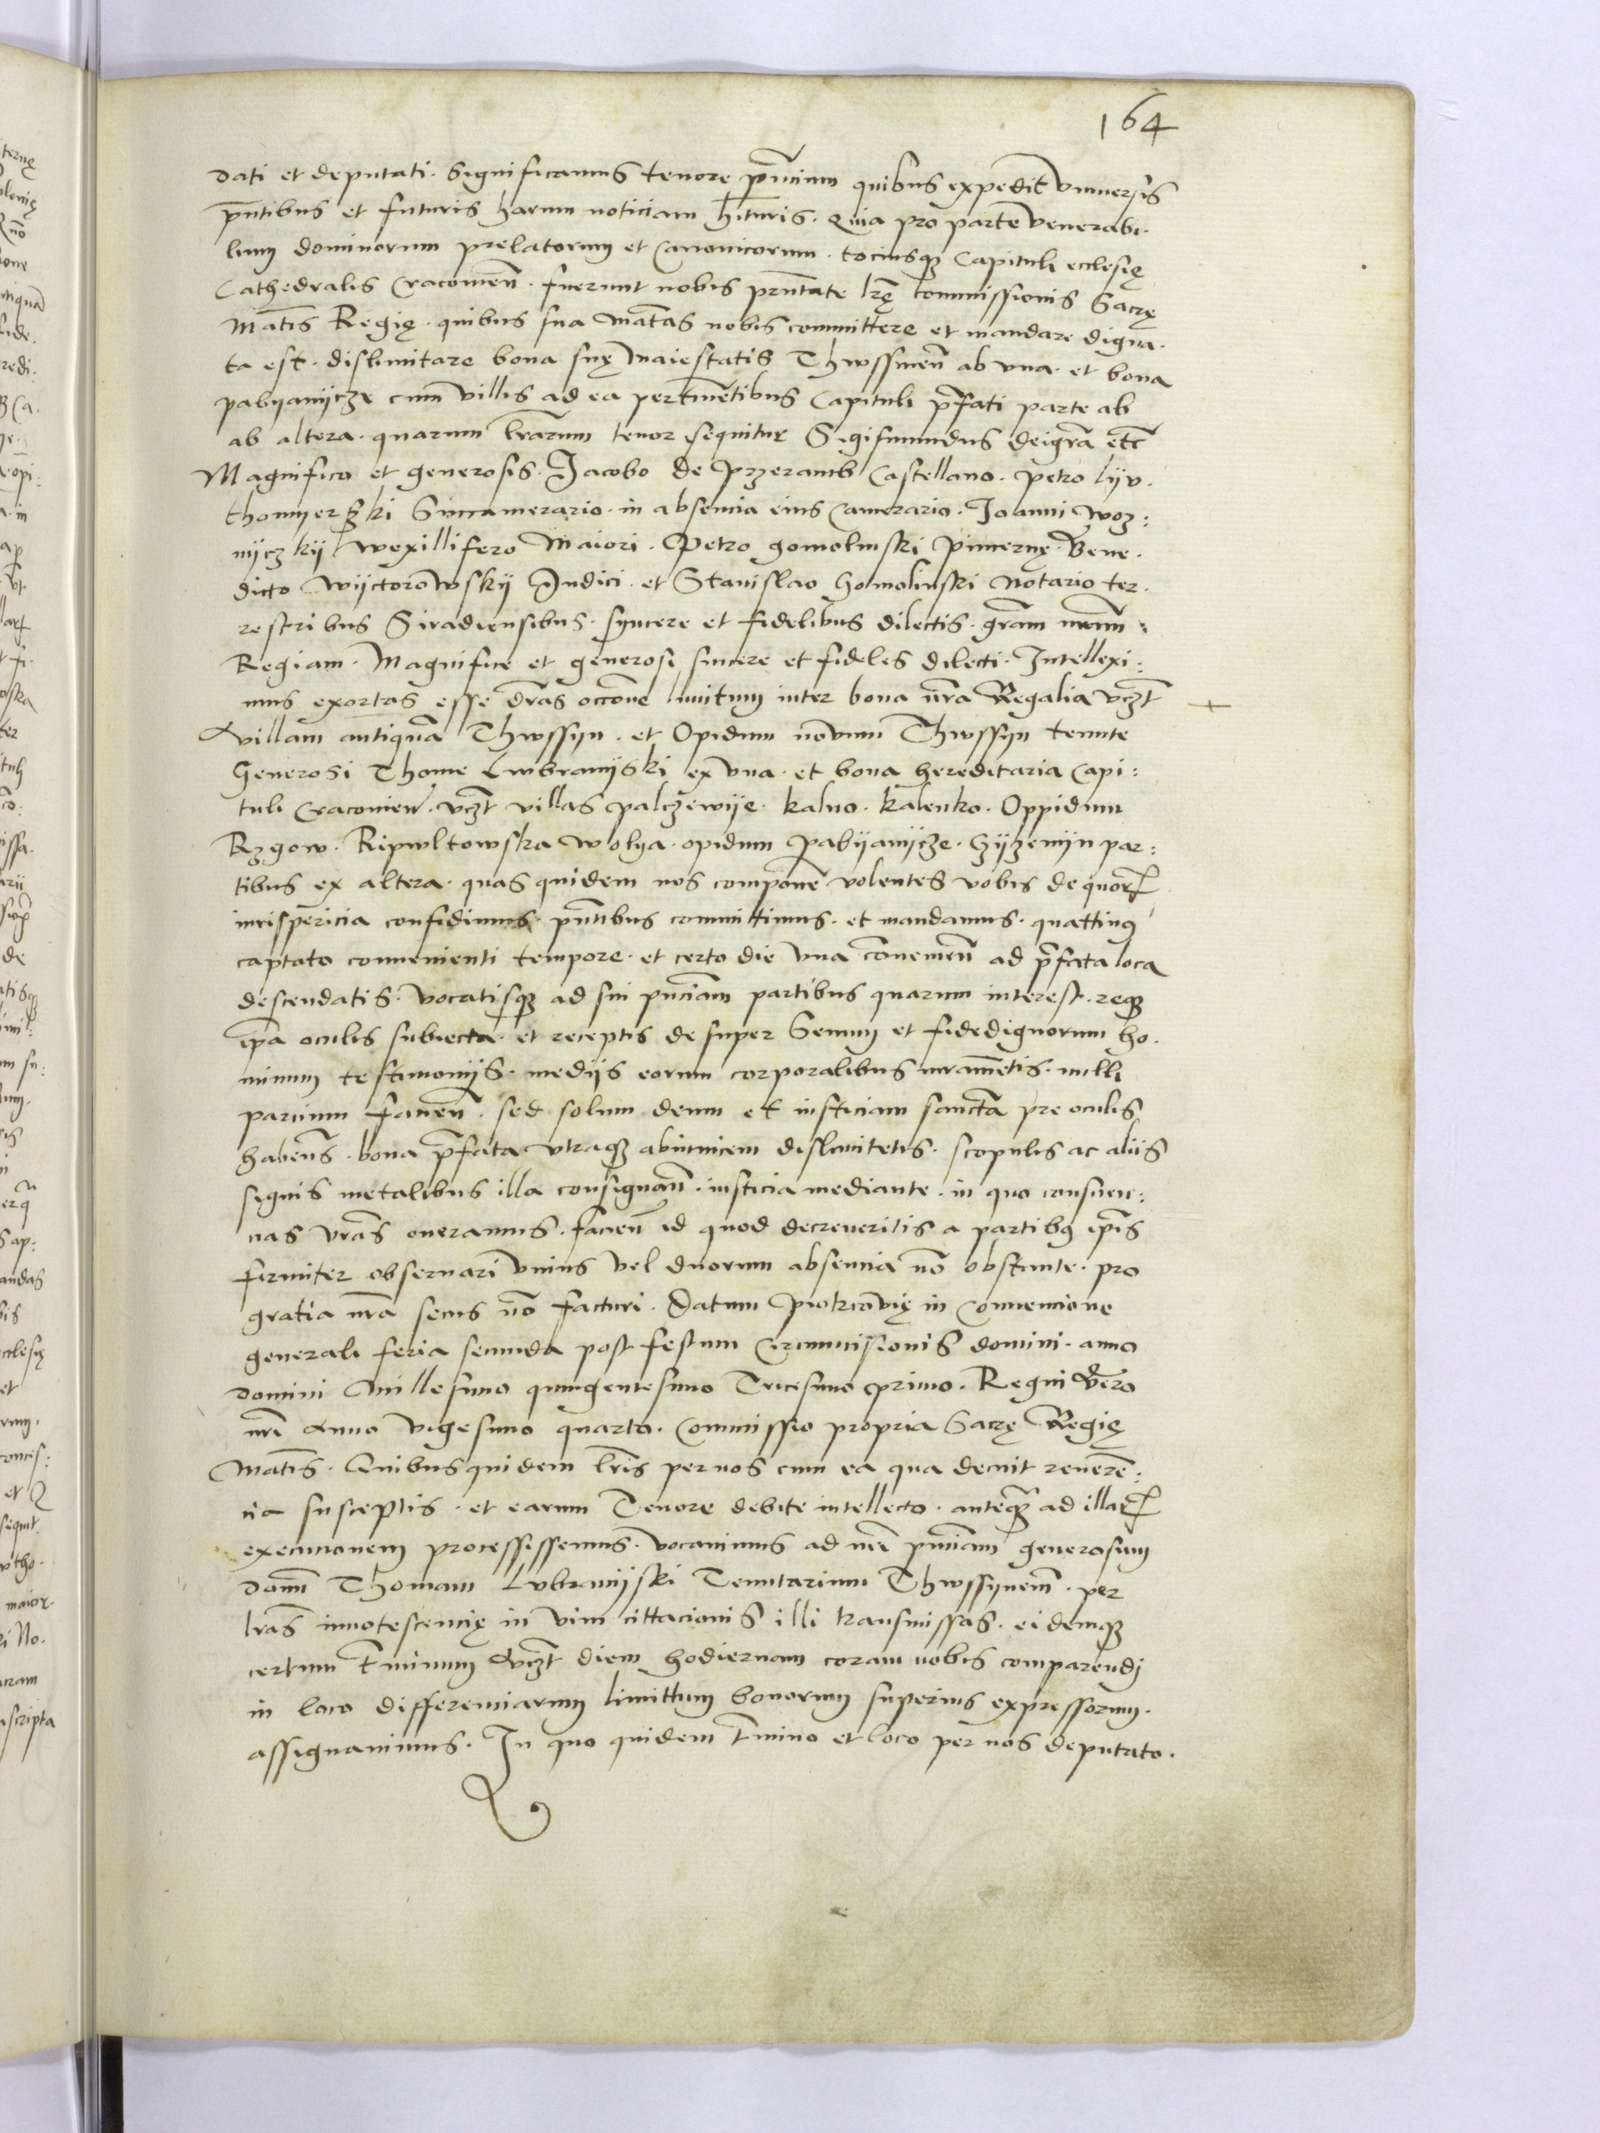 164
dati et deputati. Significamus tenore pñcium quibus expedit vniuersis
pñtibus et futuris harum noticiam hĩturis. Quia pro parte venerabi.
lium dominorum prelatorum et Canonicorum. tociusq3 Capituli ecclesię
Cathedralis Cracouieñ. fuerunt nobis pñtate lrẽ commissionis Sacrę
Matis Regię. quibus sua Matas nobis committere et mandare digna.
ta est. dislimitare bona suę maiestatis Thwssineñ ab vna. et bona
pabyanijcze cum villis ad ea pertinẽtibus Capituli p̃fati parte ab
ab altera. quarum lrãrum tenor sequitur Sigismundus dei grã etc̃
Magnifico et generosis. Jacobo de Przeramb Castellano. Petro lyv.
thomyerski Succamerario. in absencia eius Camerario. Joanni woz:
nijczkij wexillifero Maiori. Petro gomolinski pincernę. Bene.
dicto wijctorowskij Judici. et Stanislao Gomolinski Notario ter.
restribus Siradiensibus. syncere et fidelibus dilectis. grãm nr̃am:
Regiam. Magnifice et generosi sincere et fideles dilecti. Intellexi:
mus exortas esse drãs occõne limitum inter bona nr̃a Regalia vcz̃t
villam antiquã Thwssyn. et Opidum nouum Thwssyn tenute
Generosi Thome Lwbranijski ex vna. et bona hereditaria Capi:
tuli Cracouieñ. vcz̃t villas palczewije. kalno. kalenko. Oppidum
Rzgow. Ripwltowska wolya. opidum Pabijanijcze. Gyzemijn par:
tibus ex altera. quas quidem nos componẽ volentes vobis de quor̃
iurispericia confidimus. pñtibus committimus. et mandamus. quattinus
captato conuenienti tempore. et certo die vna cõuenieñ ad p̃fata loca
descendatis. vocatisq3 ad sui pñciam partibus quarum interest. req3
ip̃a oculis subiecta. et receptis desuper Senum et fidedignorum ho.
minum testimonijs. medijs eorum corporalibus iuramẽtis. nulli
parcium faueñ. sed solum deum et iusticiam sanctã pre oculis
habeñs. bona p̃fata vtraq3 abinuicem dislimitetis. scopulis ac alijs
signis metalibus illa consignañ. iusticia mediante. in quo conscien:
cias vrãs oneramus. facieñ id quod decreueritis a partibus ip̃is
firmiter obseruari vnius vel duorum absencia nõ obstante. pro
gratia nr̃a secus nõ facturi. Datum Piotrcouię in Conuencione
generali feria secunda post festum Circumcisionis domini. anno
domini Millesimo quingentesimo Tricesimo primo. Regni vero
nr̃i Anno vigesimo quarto. Commissio propria Sacrę Regię
Matis. Quibus quidem lrĩs per nos cum ea qua decuit reuerẽ:
cia susceptis. et earum Tenore debite intellecto. anteq3 ad illar̃
execucionem processissemus. vocauimus ad nr̃i pñciam generosum
dañm Thomam Lvbranijski Tenutarium Thwssyneñ. per
lrãs innotescencię in vim cittacionis illi transmissas. eidemq3
certum t̃minum vcz̃t diem hodiernam coram nobis comparendj
in loco differenciarum limittum bonorum superius expressorum.
assignauimus. In quo quidem t̃mino et loco per nos deputato.